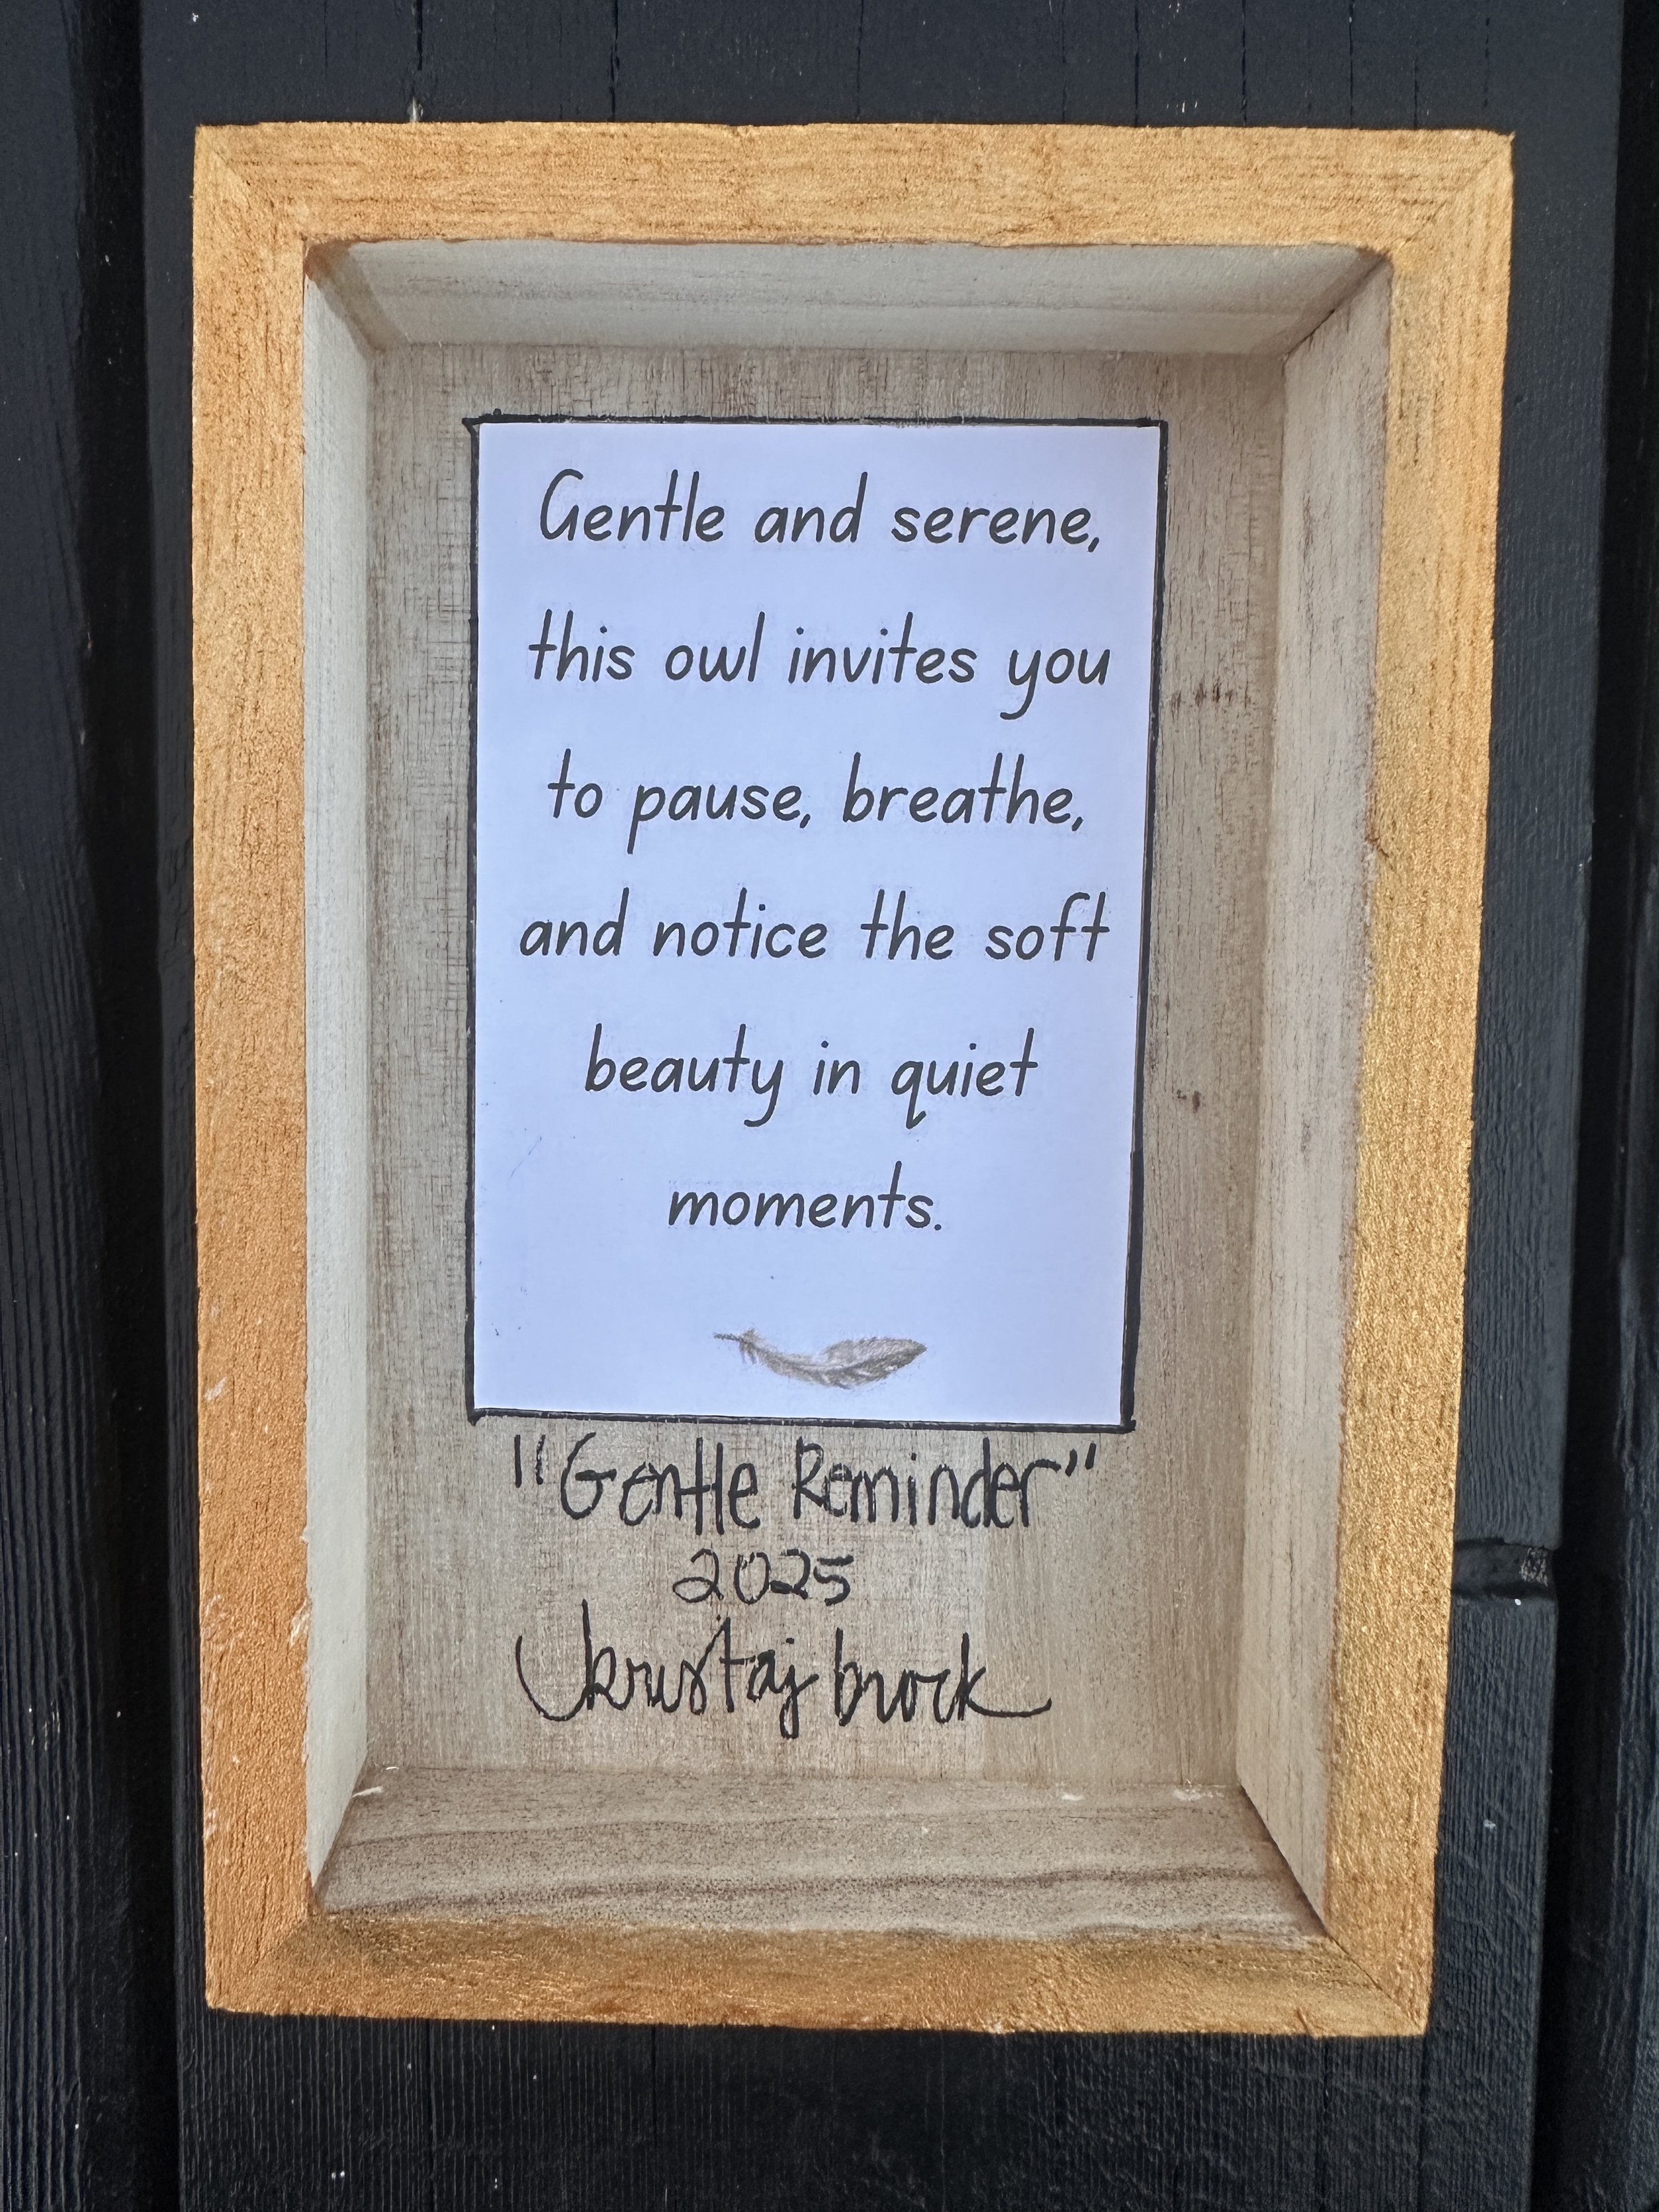 Gentle and serene,
this owl invites you
to pause, breathe,
and notice the soft
beauty in quiet
moments.
"Gentle Reminder"
2025
kristaj brock